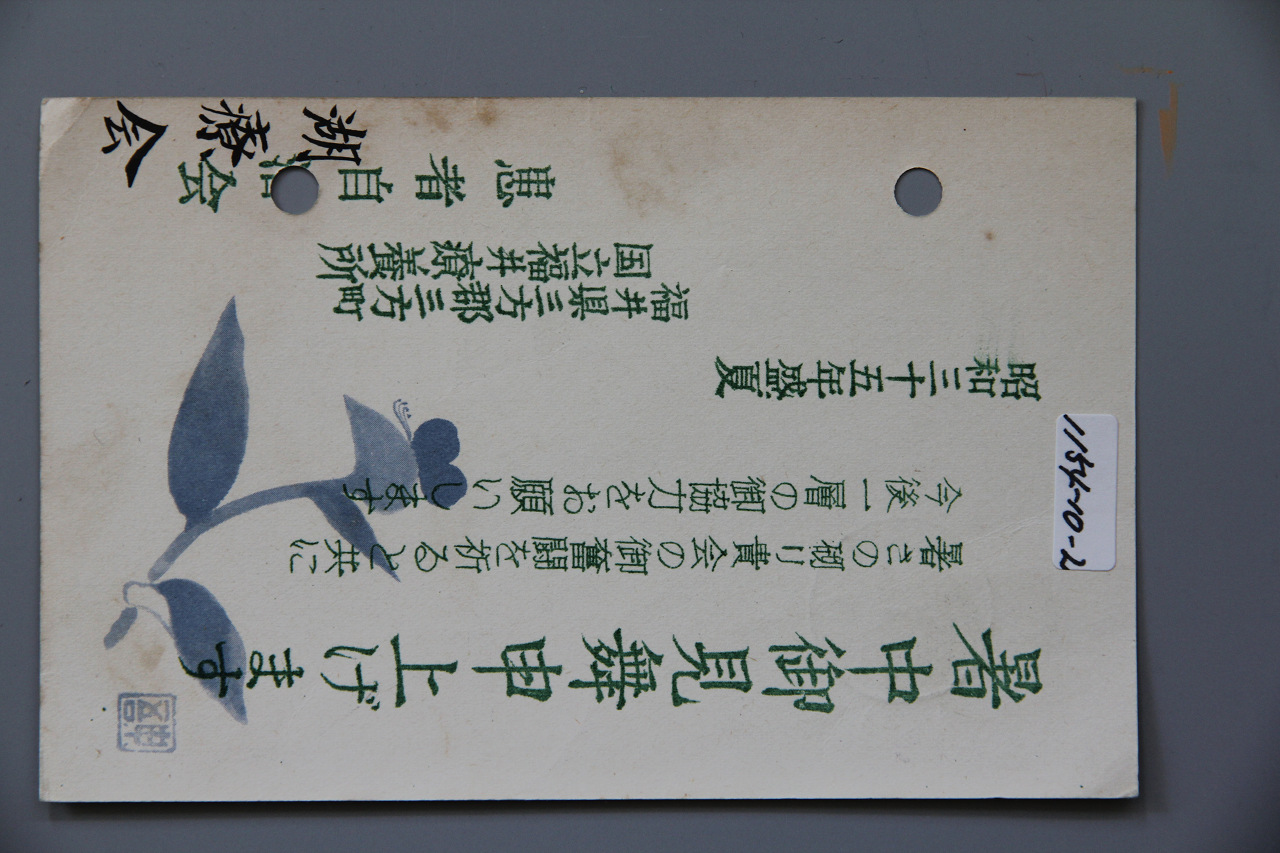 暑中御見舞申上げます
暑さの砌り貴会の御奮闘を祈ると共に
今後一層の御協力をお願いします
昭和三十五年盛夏
福井県三方郡三方町
国立福井療養所
患者自治会
湖療会